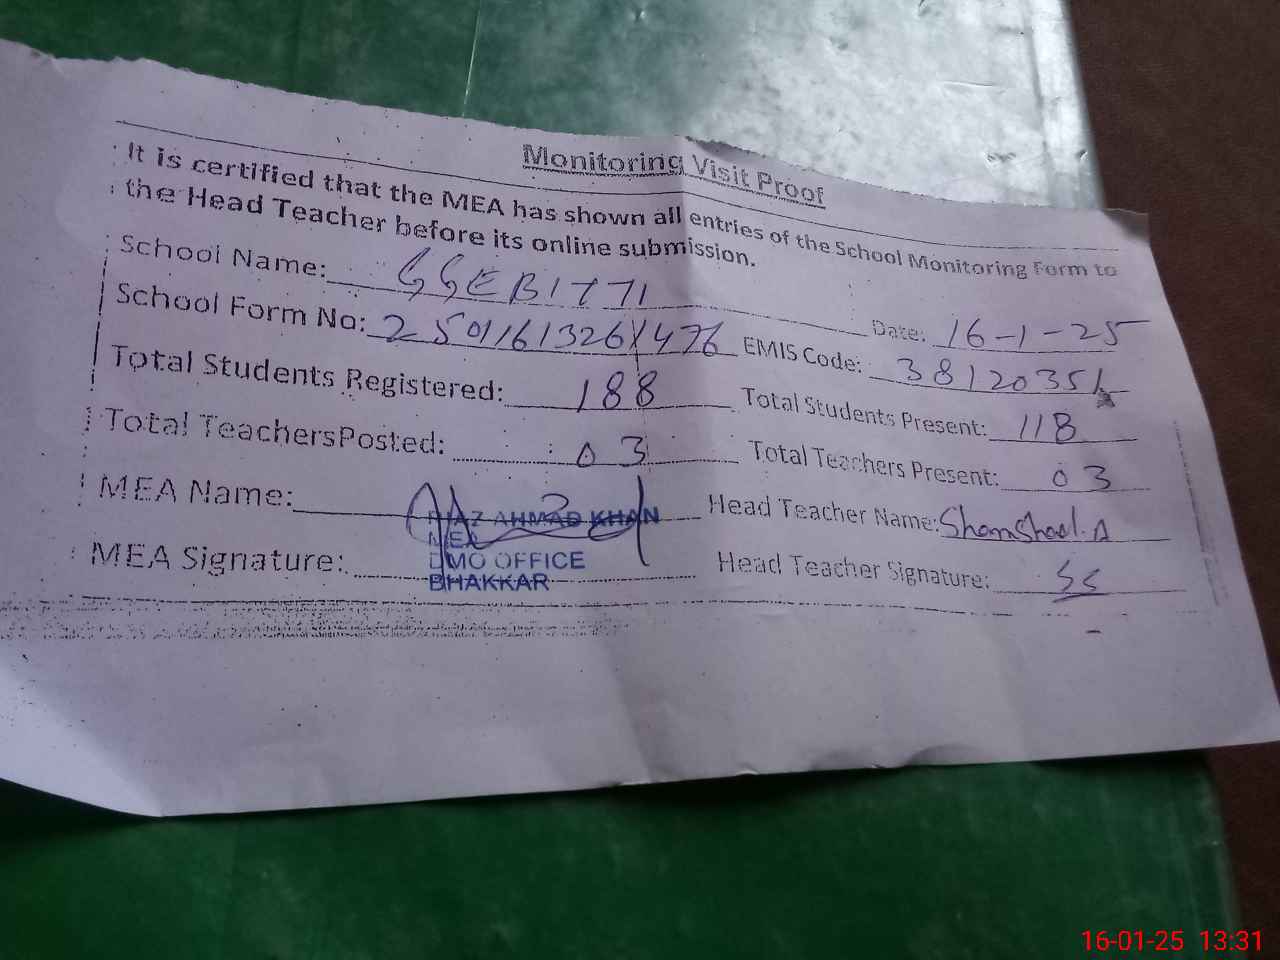 Monitoring Visit Proof
It is certified that the MEA has shown all entries of the School Monitoring Form to
the Head Teacher before its online submission.
School Name: Date: 16-1-25
School Form No: EMIS Code: 38120351
Total Students Registered: 188 Total Students Present: 118
Total TeachersPosted: 03 Total Teachers Present: 03
MEA Name: Head Teacher Name: Shamshad.A
RIAZ AHMAD KHAN
MEA
MEA Signature: Head Teacher Signature: SS
DMO OFFICE
BHAKKAR
16-01-25 13:31